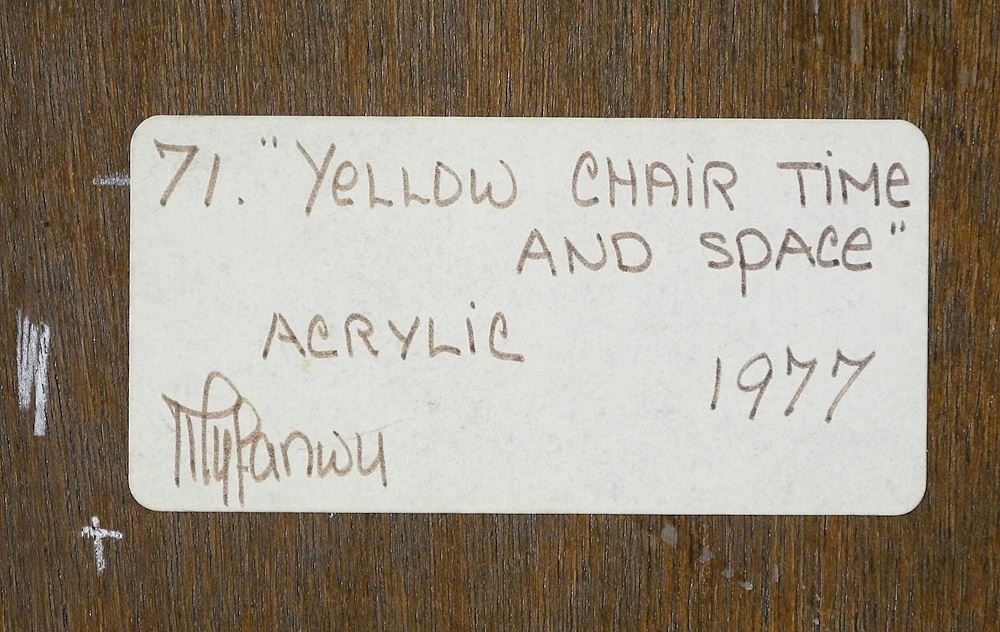 71. "YeLLOW CHAiR TiMe
AND SpACe"
ACRYLiC
1977
Myfanwy